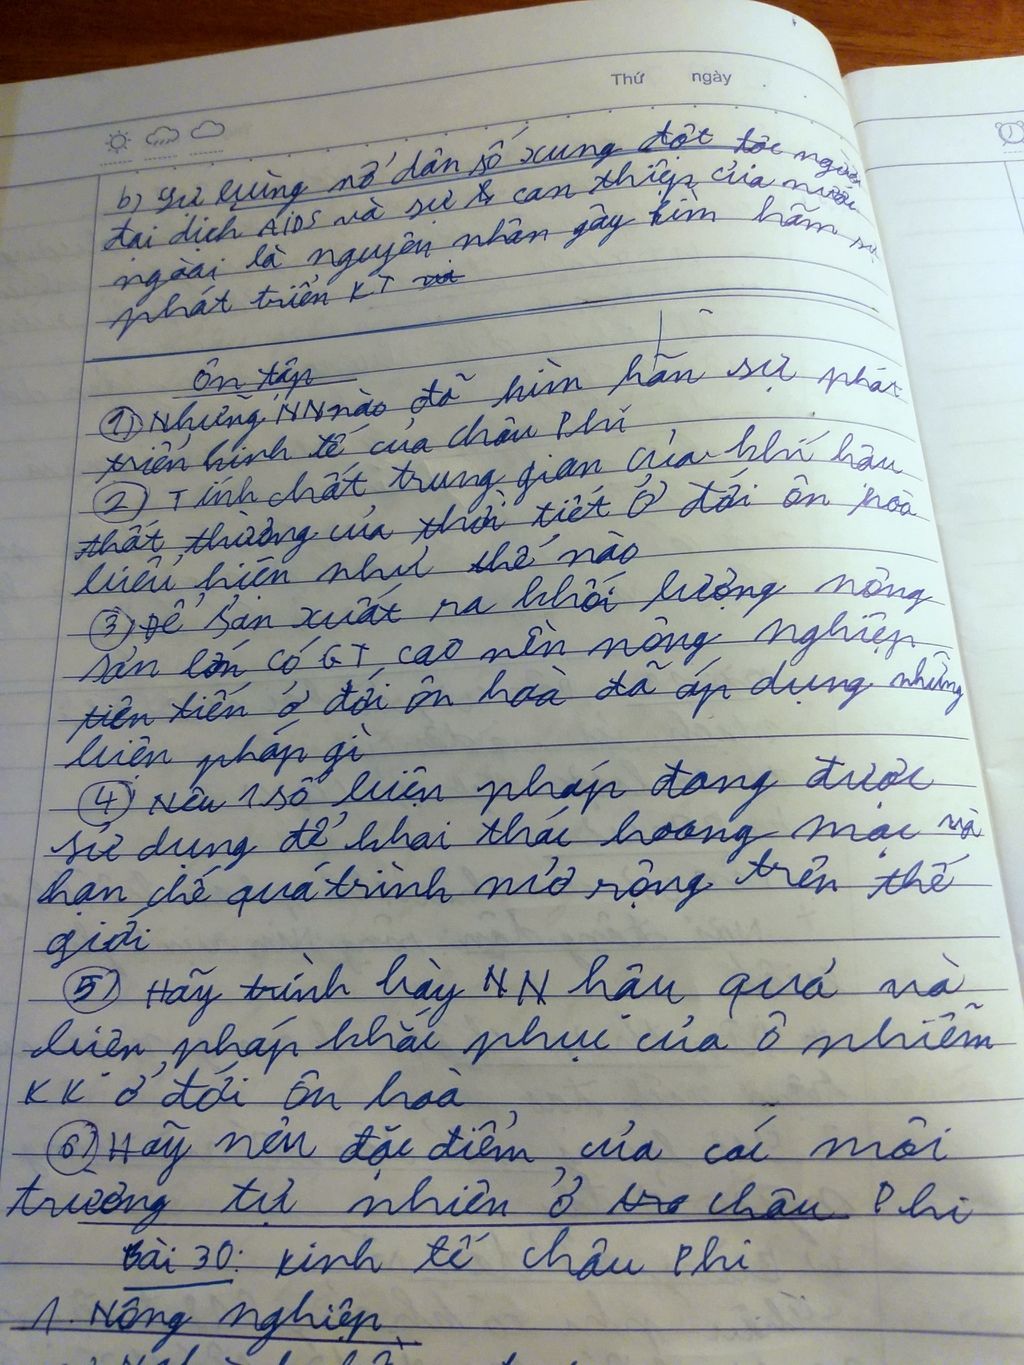 Thứ ngày
b) Sự bùng nổ dân số xung đột tộc người
đại dịch AIDS và sự can thiệp của nước
ngoài là nguyên nhân gây kìm hãm sự
phát triển KT
Ôn tập
① Những NN nào đã kìm hãn sự phát
triển kinh tế của châu Phi
② Tính chất trung gian của khí hậu
thất thường của thời tiết ở đới ôn hoà
biểu hiện như thế nào
③ Để sản xuất ra khối lượng nông
sản lớn có GT cao nền nông nghiệp
tiên tiến ở đới ôn hoà đã áp dụng những
biện pháp gì
④ Nêu 1 số biện pháp đang được
sử dụng để khai thác hoang mạc và
hạn chế quá trình mở rộng trên thế
giới
⑤ Hãy trình bày NN hậu quả và
biện pháp khắc phục của ô nhiễm
KK ở đới ôn hoà
⑥ Hãy nêu đặc điểm của các môi
trường tự nhiên ở châu Phi
Bài 30: Kinh tế châu Phi
1. Nông nghiệp